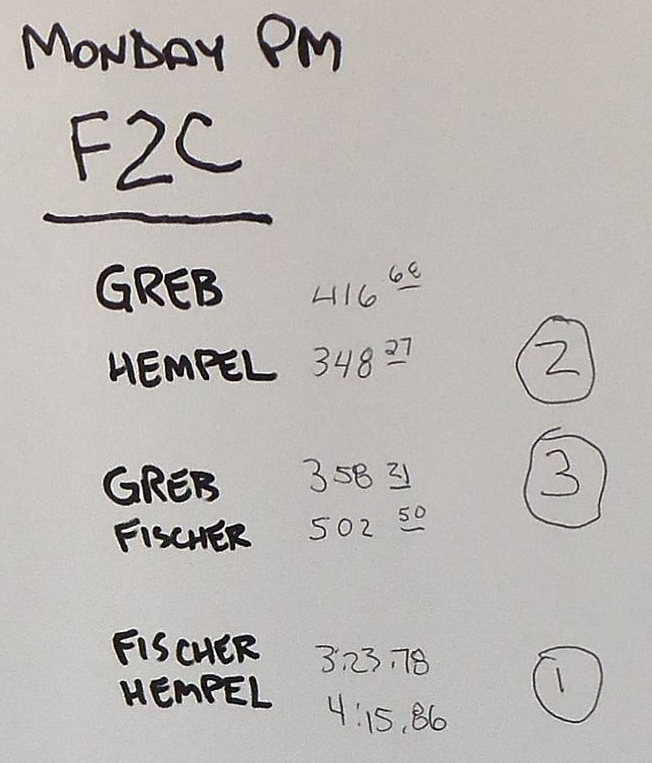 MONDAY PM
F2C
GREB 416 68
HEMPEL 348 27 2
GREB 358 31 3
FISCHER 502 50
FISCHER 3:23.78
HEMPEL 4:15.86 1